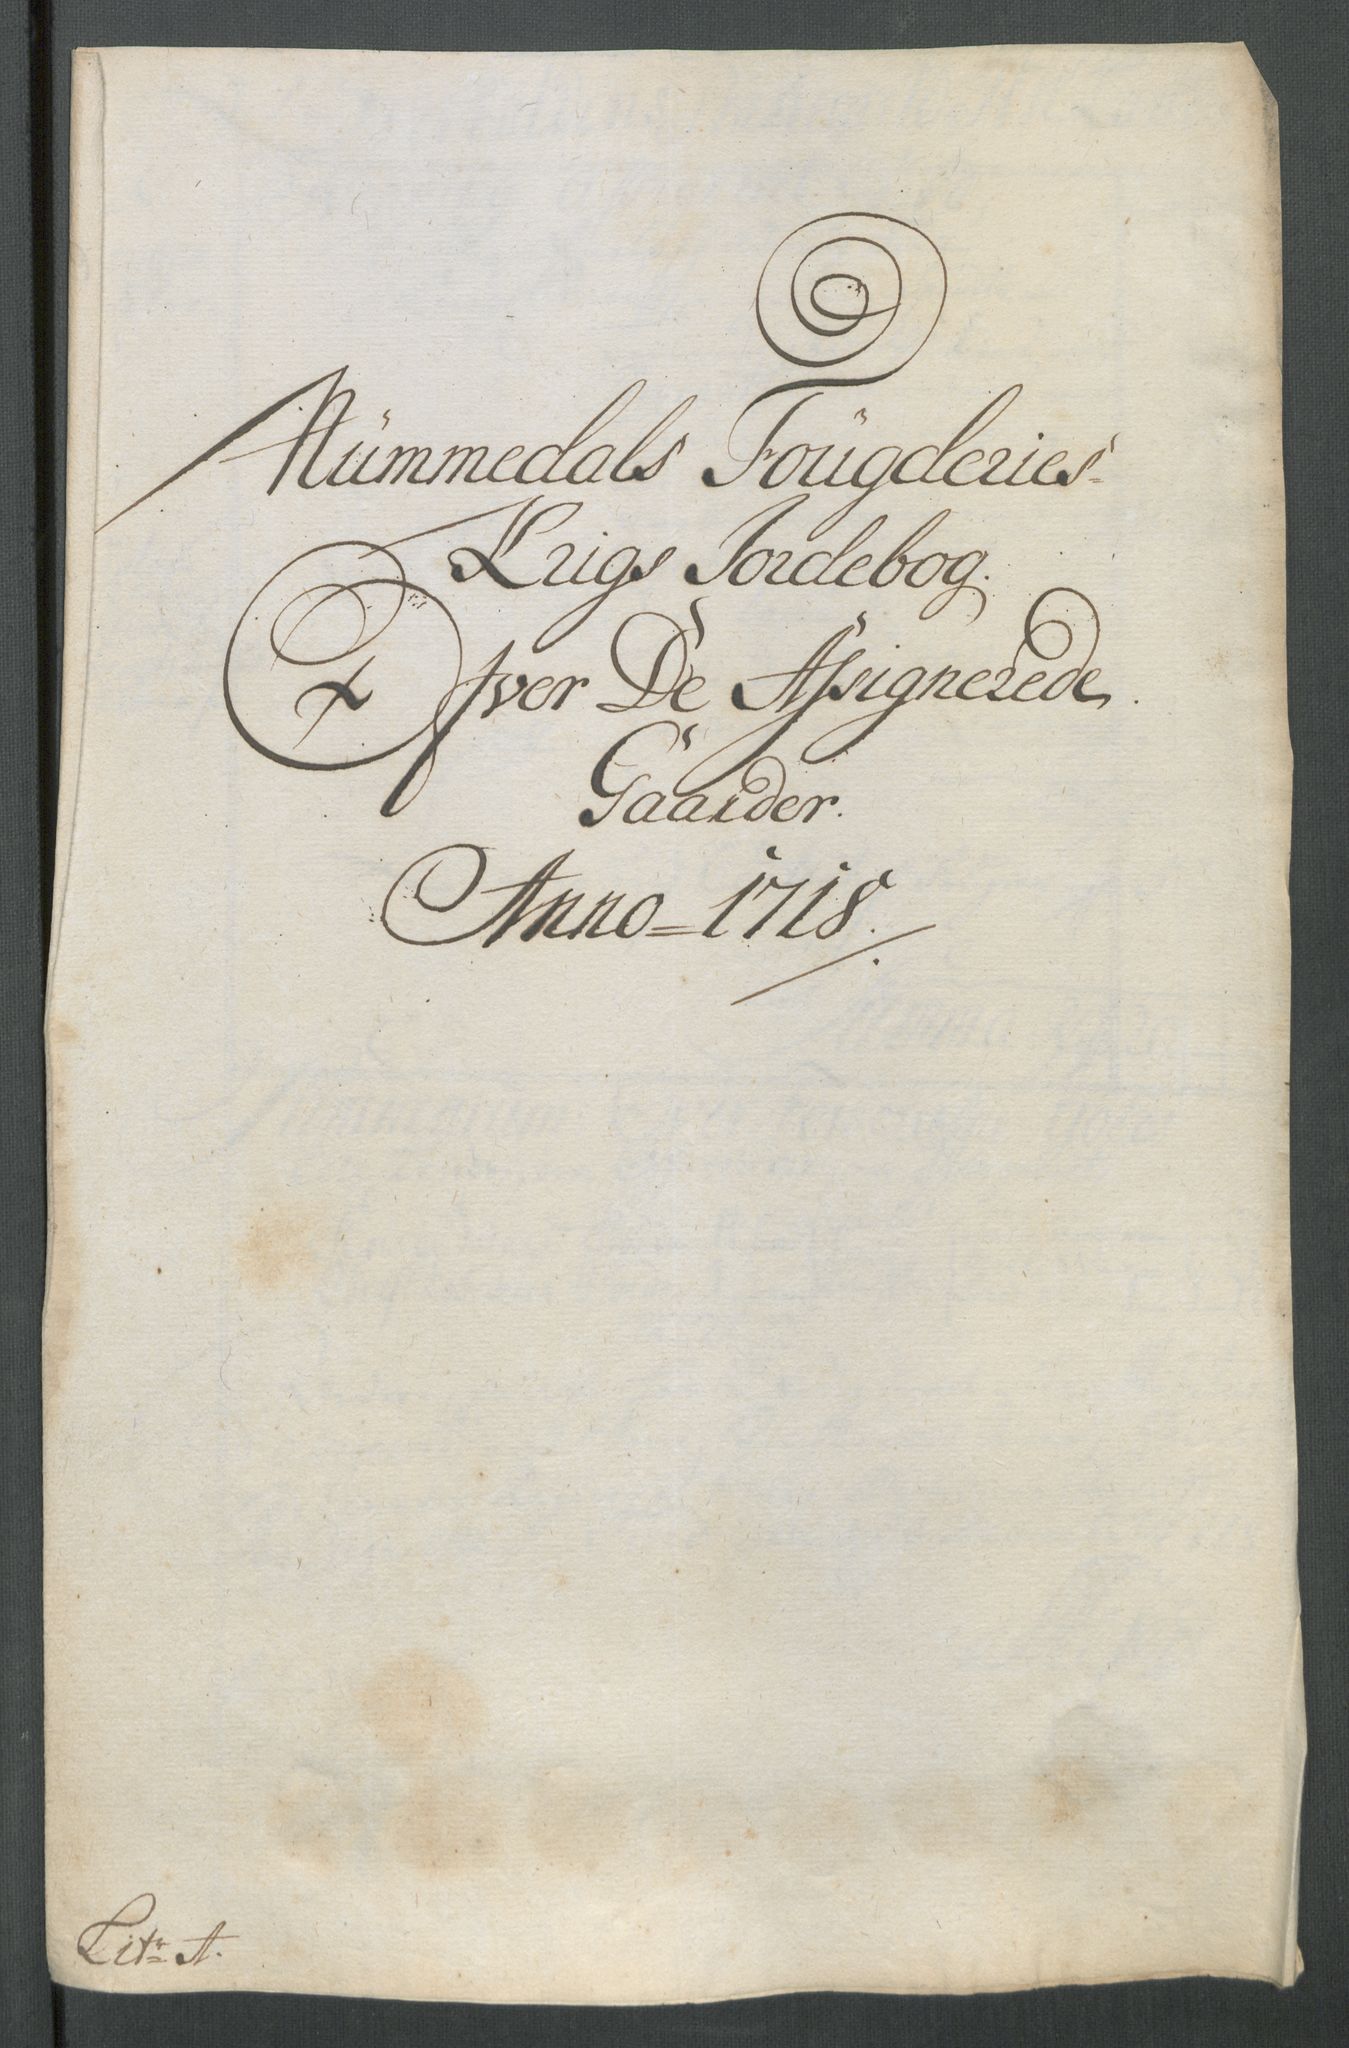 Nümmedals Foügderies
Krigs Jordebog.
Ofver De Assignerede.
Gaarder.
Anno = 1718.
Litr. A.